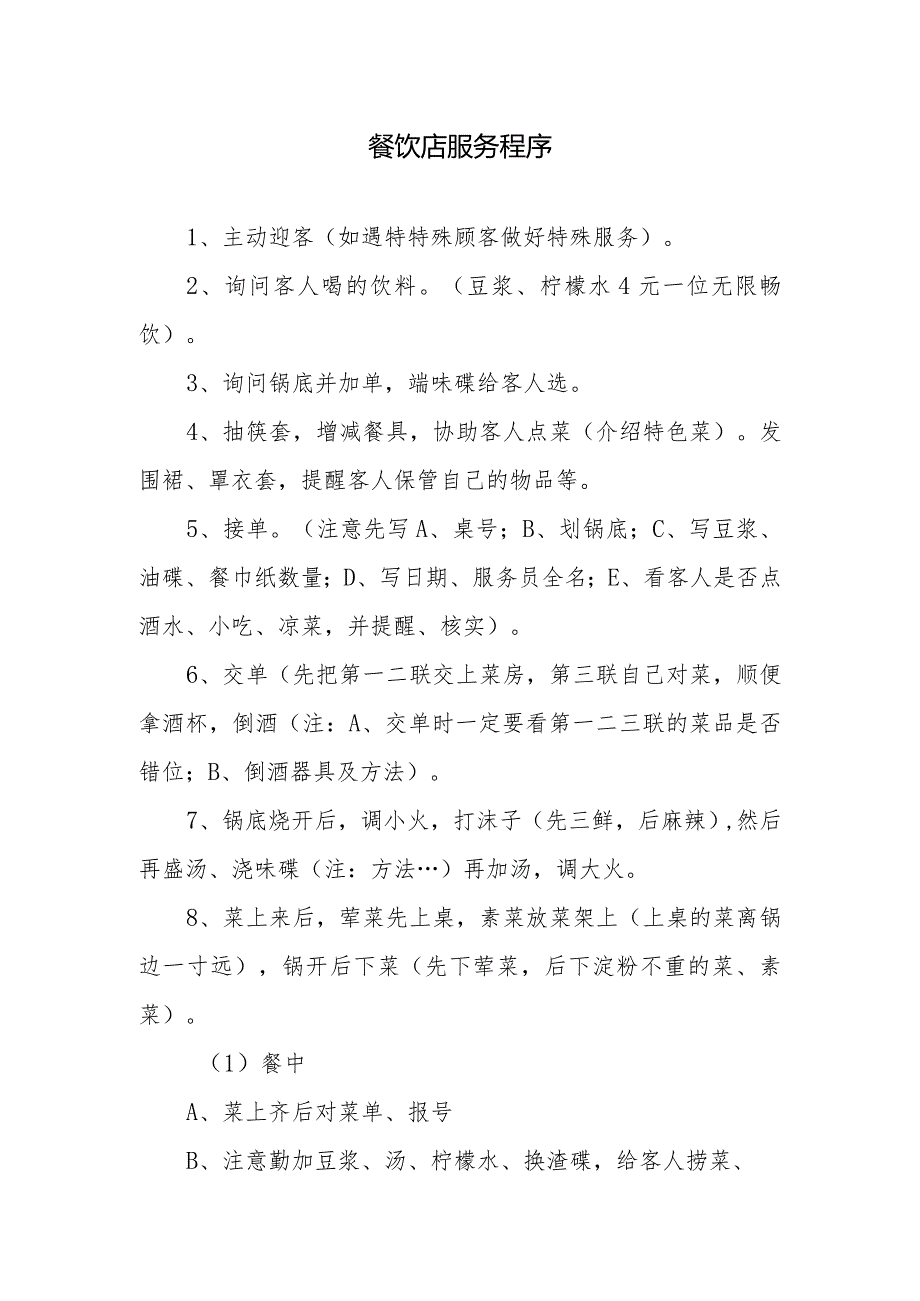 餐饮店服务程序
1、主动迎客（如遇特特殊顾客做好特殊服务）。
2、询问客人喝的饮料。（豆浆、柠檬水 4 元一位无限畅
饮）。
3、询问锅底并加单，端味碟给客人选。
4、抽筷套，增减餐具，协助客人点菜（介绍特色菜）。发
围裙、罩衣套，提醒客人保管自己的物品等。
5、接单。（注意先写 A、桌号；B、划锅底；C、写豆浆、
油碟、餐巾纸数量；D、写日期、服务员全名；E、看客人是否点
酒水、小吃、凉菜，并提醒、核实）。
6、交单（先把第一二联交上菜房，第三联自己对菜，顺便
拿酒杯，倒酒（注：A、交单时一定要看第一二三联的菜品是否
错位；B、倒酒器具及方法）。
7、锅底烧开后，调小火，打沫子（先三鲜，后麻辣）,然后
再盛汤、浇味碟（注：方法…）再加汤，调大火。
8、菜上来后，荤菜先上桌，素菜放菜架上（上桌的菜离锅
边一寸远），锅开后下菜（先下荤菜，后下淀粉不重的菜、素
菜）。
（1）餐中
A、菜上齐后对菜单、报号
B、注意勤加豆浆、汤、柠檬水、换渣碟，给客人捞菜、